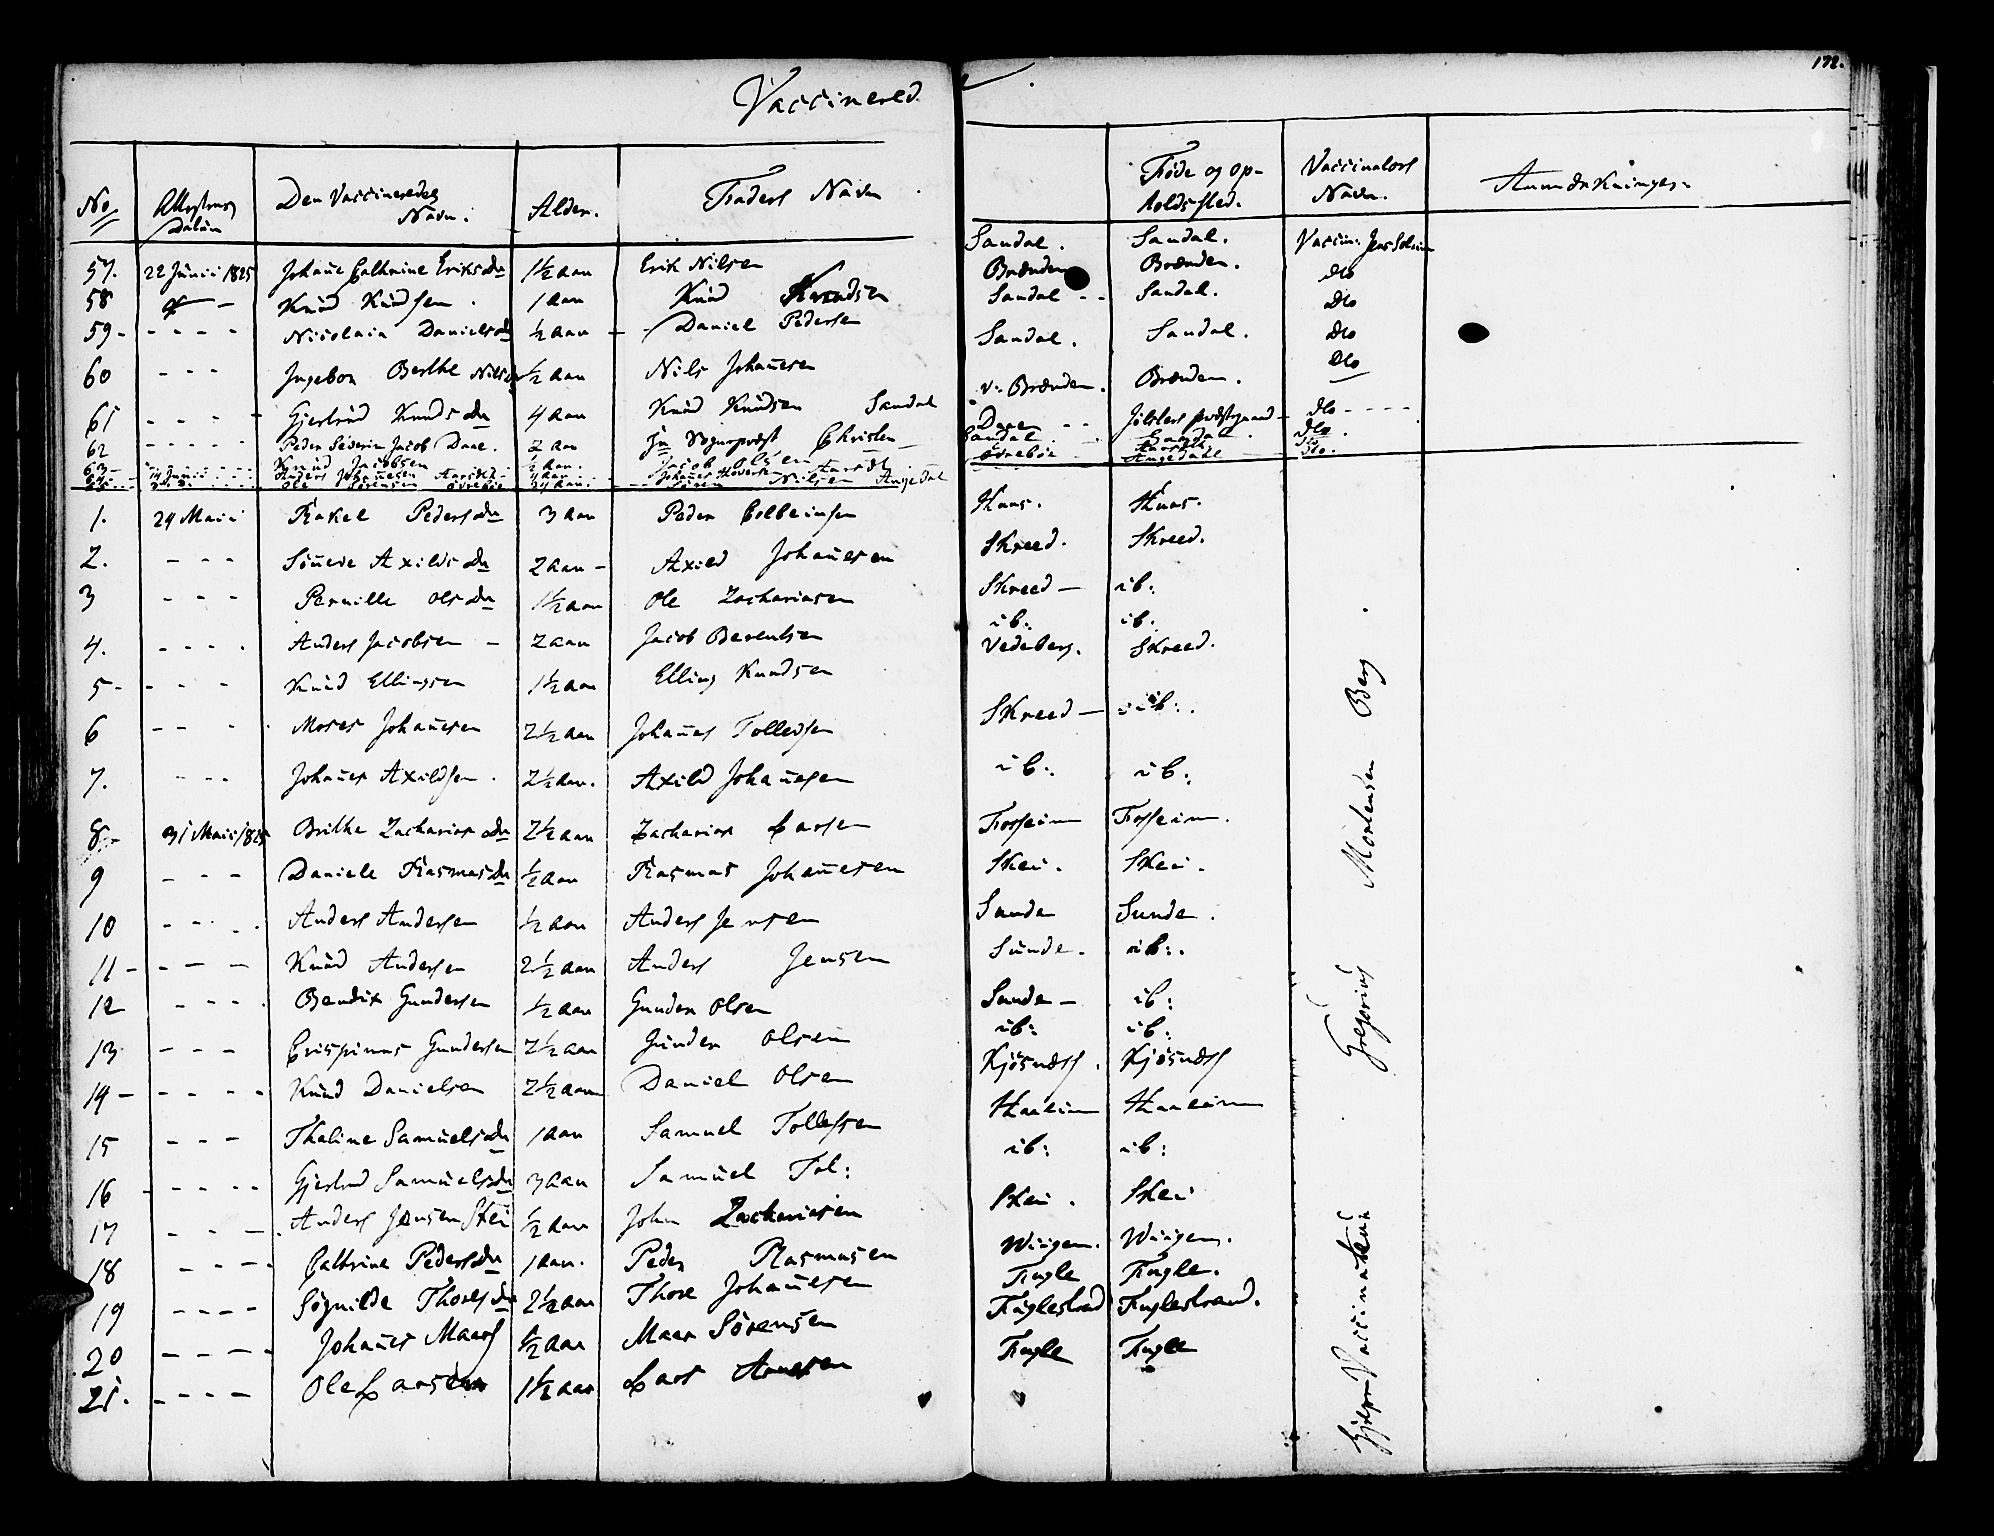 172.
Vaccinered
No
Attestens Datum
Den Vaccineredes Navn.
Alder.
Faders Navn
Føde og Opholdssted.
Vaccinators Navn.
Anmærkninger.
57. 22 Junii 1825 Johanne Cathrine Eriksdr 1½ aar Erik Nilsen Sandal. Sandal. Vaccin:
58 Knud Knudsen. 1 aar Knud Knudsen Brænden Brænden. dto
59 - - - - Nicolaia Danielsdr ½ aar Daniel Pedersen Sandal - - Sandal. dto
60 - - - Ingebor Berthe Nilsdr ½ aar Nils Johannesen Sandal. Sandal. dto
61 - - - Gjertrud Knudsdr 4 aar Knud Knudsen Sandal v: Brænden. Brænden. dto
62 - - - - - Peder Severin Jacob Daae. 2 aar Hr Sogneprest Christen Daae - - Jølsters præstegaard - dto - - - -
63 - Knud Jacobsen ½ aar. Jacob Olsen Sandal dto.
14 Junii Anders Johannesen Aarseth Øvrebøe Angedahl dto.
Sørensen Nilsen Angedal
1. 24 Maii Rakel Pedersdr 3 aar Peder Colbeinsen Huus. Huus.
2. - - - Synneve Axildsdr 2 aar - Axild Johannesen Skreed. Skreed.
3 - - - Pernille Olsdr 1½ aar Ole Zachariasen Skreed - ib:
4. - - - . Anders Jacobsen - 2 aar Jacob Berentsen ib: ib:
5 - - - - Knud Ellingsen 1½ aar Elling Knudsen Vedeberg. Skreed.
6 - - - Moses Johannesen 2½ aar Johannes Tollevsen Skreed - ib:
7. - - - Johannes Axildsen. 2½ aar. Axild Johannesen ib: ib:
8 - 31 Maii 1825 Brithe Zachariasdr 2½ aar Zacharias Larsen Fosseim Fosseim.
9 - - - Daniele Rasmusdr ½ aar Rasmus Johannesen Skei. Skei.
10 - - - . Anders Andersen ½ aar Anders Jensen Sunde Sunde.
11 - - - - Knud Andersen 2½ aar Anders Jensen Sunde. ib:
12 - - - . Bendix Gundersen ½ aar Gunder Olsen Sunde - ib:
13 - - - Crispinus Gundersen 2½ aar Gunder Olsen ib: ib:
14 - - - - - Knud Danielsen 2½ aar Daniel Olsen Kjøsnæss. Kjøsnæss
15 - - - Thaline Samuelsdr 1 aar Samuel Tollefsen Haaheim Haaheim
16 - - - - Gjertrud Samuelsdr 3 aar Samuel Tol: ib: ib:
17 - - - Anders Jensen Skei ½ aar John Zachariasen Skei. Skei
18 - - - - Cathrine Pedersdr 1 aar. Peder Rasmusen Wiigen. Wiigen.
19 - - - - Søgnilde Thoresdr 2½ aar Thore Johannesen Fugle Fugle.
20 - - - - Johannes Maars ½ aar Maar Sørensen Fuglestrand Fuglestrand.
21. - - - - Ole Larsen 1½ aar Lars Arnesen Fugle Fugle
Hjelpe Vaccinateur Gregorius Mortensen Berg